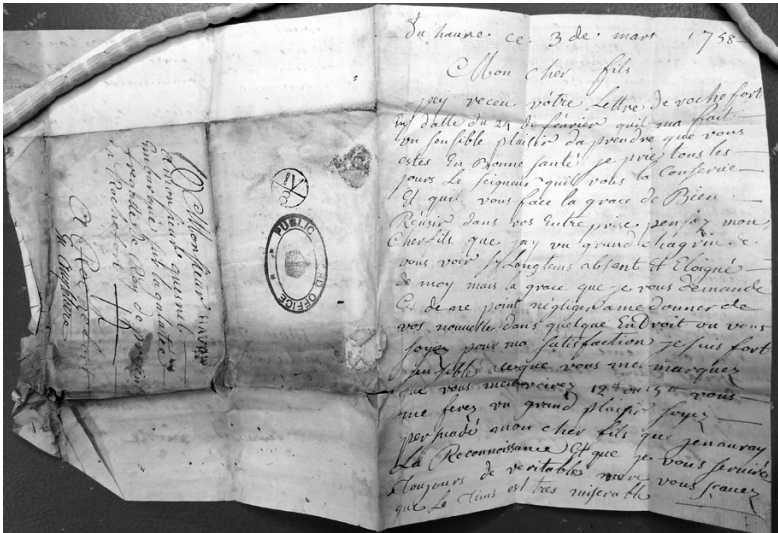 Du havre ce 3 de mars 1758
Mon cher fils
jay receu vótre Lettre de rochefort
En datte du 21 de février quil ma fait
un sensible plaisir daprendre que vous
estes En Bonne santé je prie tous les
jours Le seigneur quil vous la Conservie
Et quil vous face la grace de Bien
Reusir dans vos Entreprise pensez mon
Cher fils que jay un grand chagrin de
vous voir sy Longtems absent Et Eloigué
de moy mais la grace que je vous demande
Ces de ne point négliger ame donner de
vos nouvelles dans quelque Endroit ou vous
soyez pour ma satisfaction je suis fort
sensible aceque vous me marquez
que vous 12 vous
me ferez un grand plaisir soyez
persuadé mon cher fils que jenauray
La Reconnoissance Et que je vous serviré
Toujours de veritable mere vous scavez
que Le tems est tres miserable
A Monsieur
Monsieur quesnel
Embarqué sur la galatée
fregatte du Roy de présent
au Rochefort
A Rochefort
HAVRE
IV
3
PUBLIC
RD OFFICE